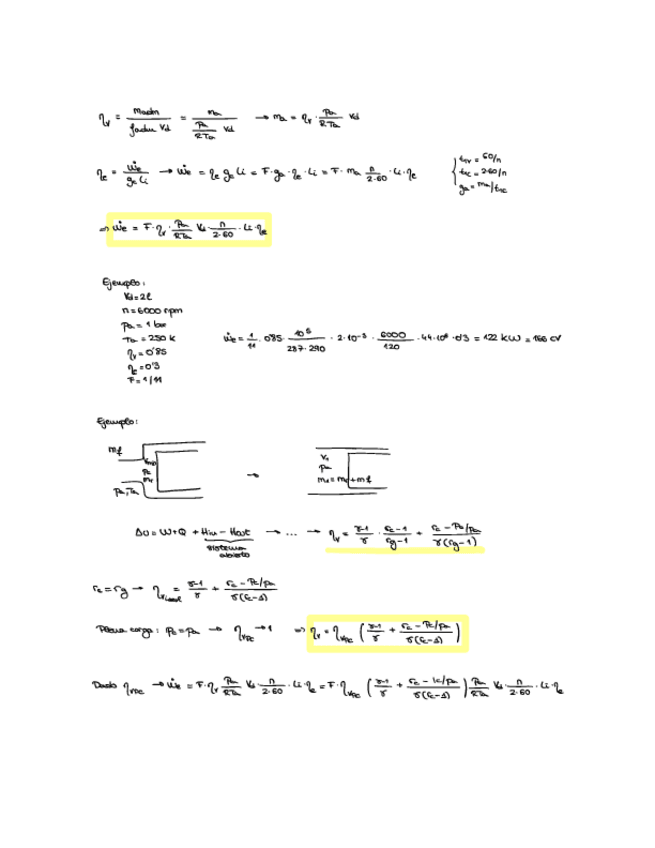 η_v = m_adm / (ρ_adm V_d) = m_a / ((p_a / RT_a) V_d) → m_a = η_v · (p_a / RT_a) V_d
η_e = Ẇe / (g_c Li) → Ẇe = η_e g_c Li = F · g_a · η_e · Li = F · m_a (n / 2·60) · Li · η_e
t_rv = 60/n
t_rc = 2·60/n
g_a = m_a/t_rc
⇒ Ẇe = F · η_v · (p_a / RT_a) V_d · (n / 2·60) · Li · η_e
Ejemplo:
V_d = 2ℓ
n = 6000 rpm
p_a = 1 bar
T_a = 250 K
η_v = 0'85
η_e = 0'3
F = 1/11
Ẇe = (1/11) · 0'85 · (10^5 / 287·290) · 2·10^-3 · (6000 / 120) · 44·10^6 · 0'3 = 122 kW = 166 CV
Ejemplo:
m_f
p_a, T_a
→
V_1
m_1 = m_r + m_f
ΔU = W + Q + H_in − H_out → ... → η_v = (γ−1)/γ · (r_c−1)/(r_g−1) + (r_c − p_c/p_a) / (γ(r_g−1))
sistema
abierto
r_c = r_g → η_v ideal = (γ−1)/γ + (r_c − p_c/p_a) / (γ(r_c−1))
Plena carga: p_c = p_a → η_vpc → 1 ⇒ η_v = η_vpc ((γ−1)/γ + (r_c − p_c/p_a) / (γ(r_c−1)))
Dado η_vpc → Ẇe = F · η_v (p_a / RT_a) V_d · (n / 2·60) · Li · η_e = F · η_vpc ((γ−1)/γ + (r_c − p_c/p_a) / (γ(r_c−1))) (p_a / RT_a) V_d · (n / 2·60) · Li · η_e